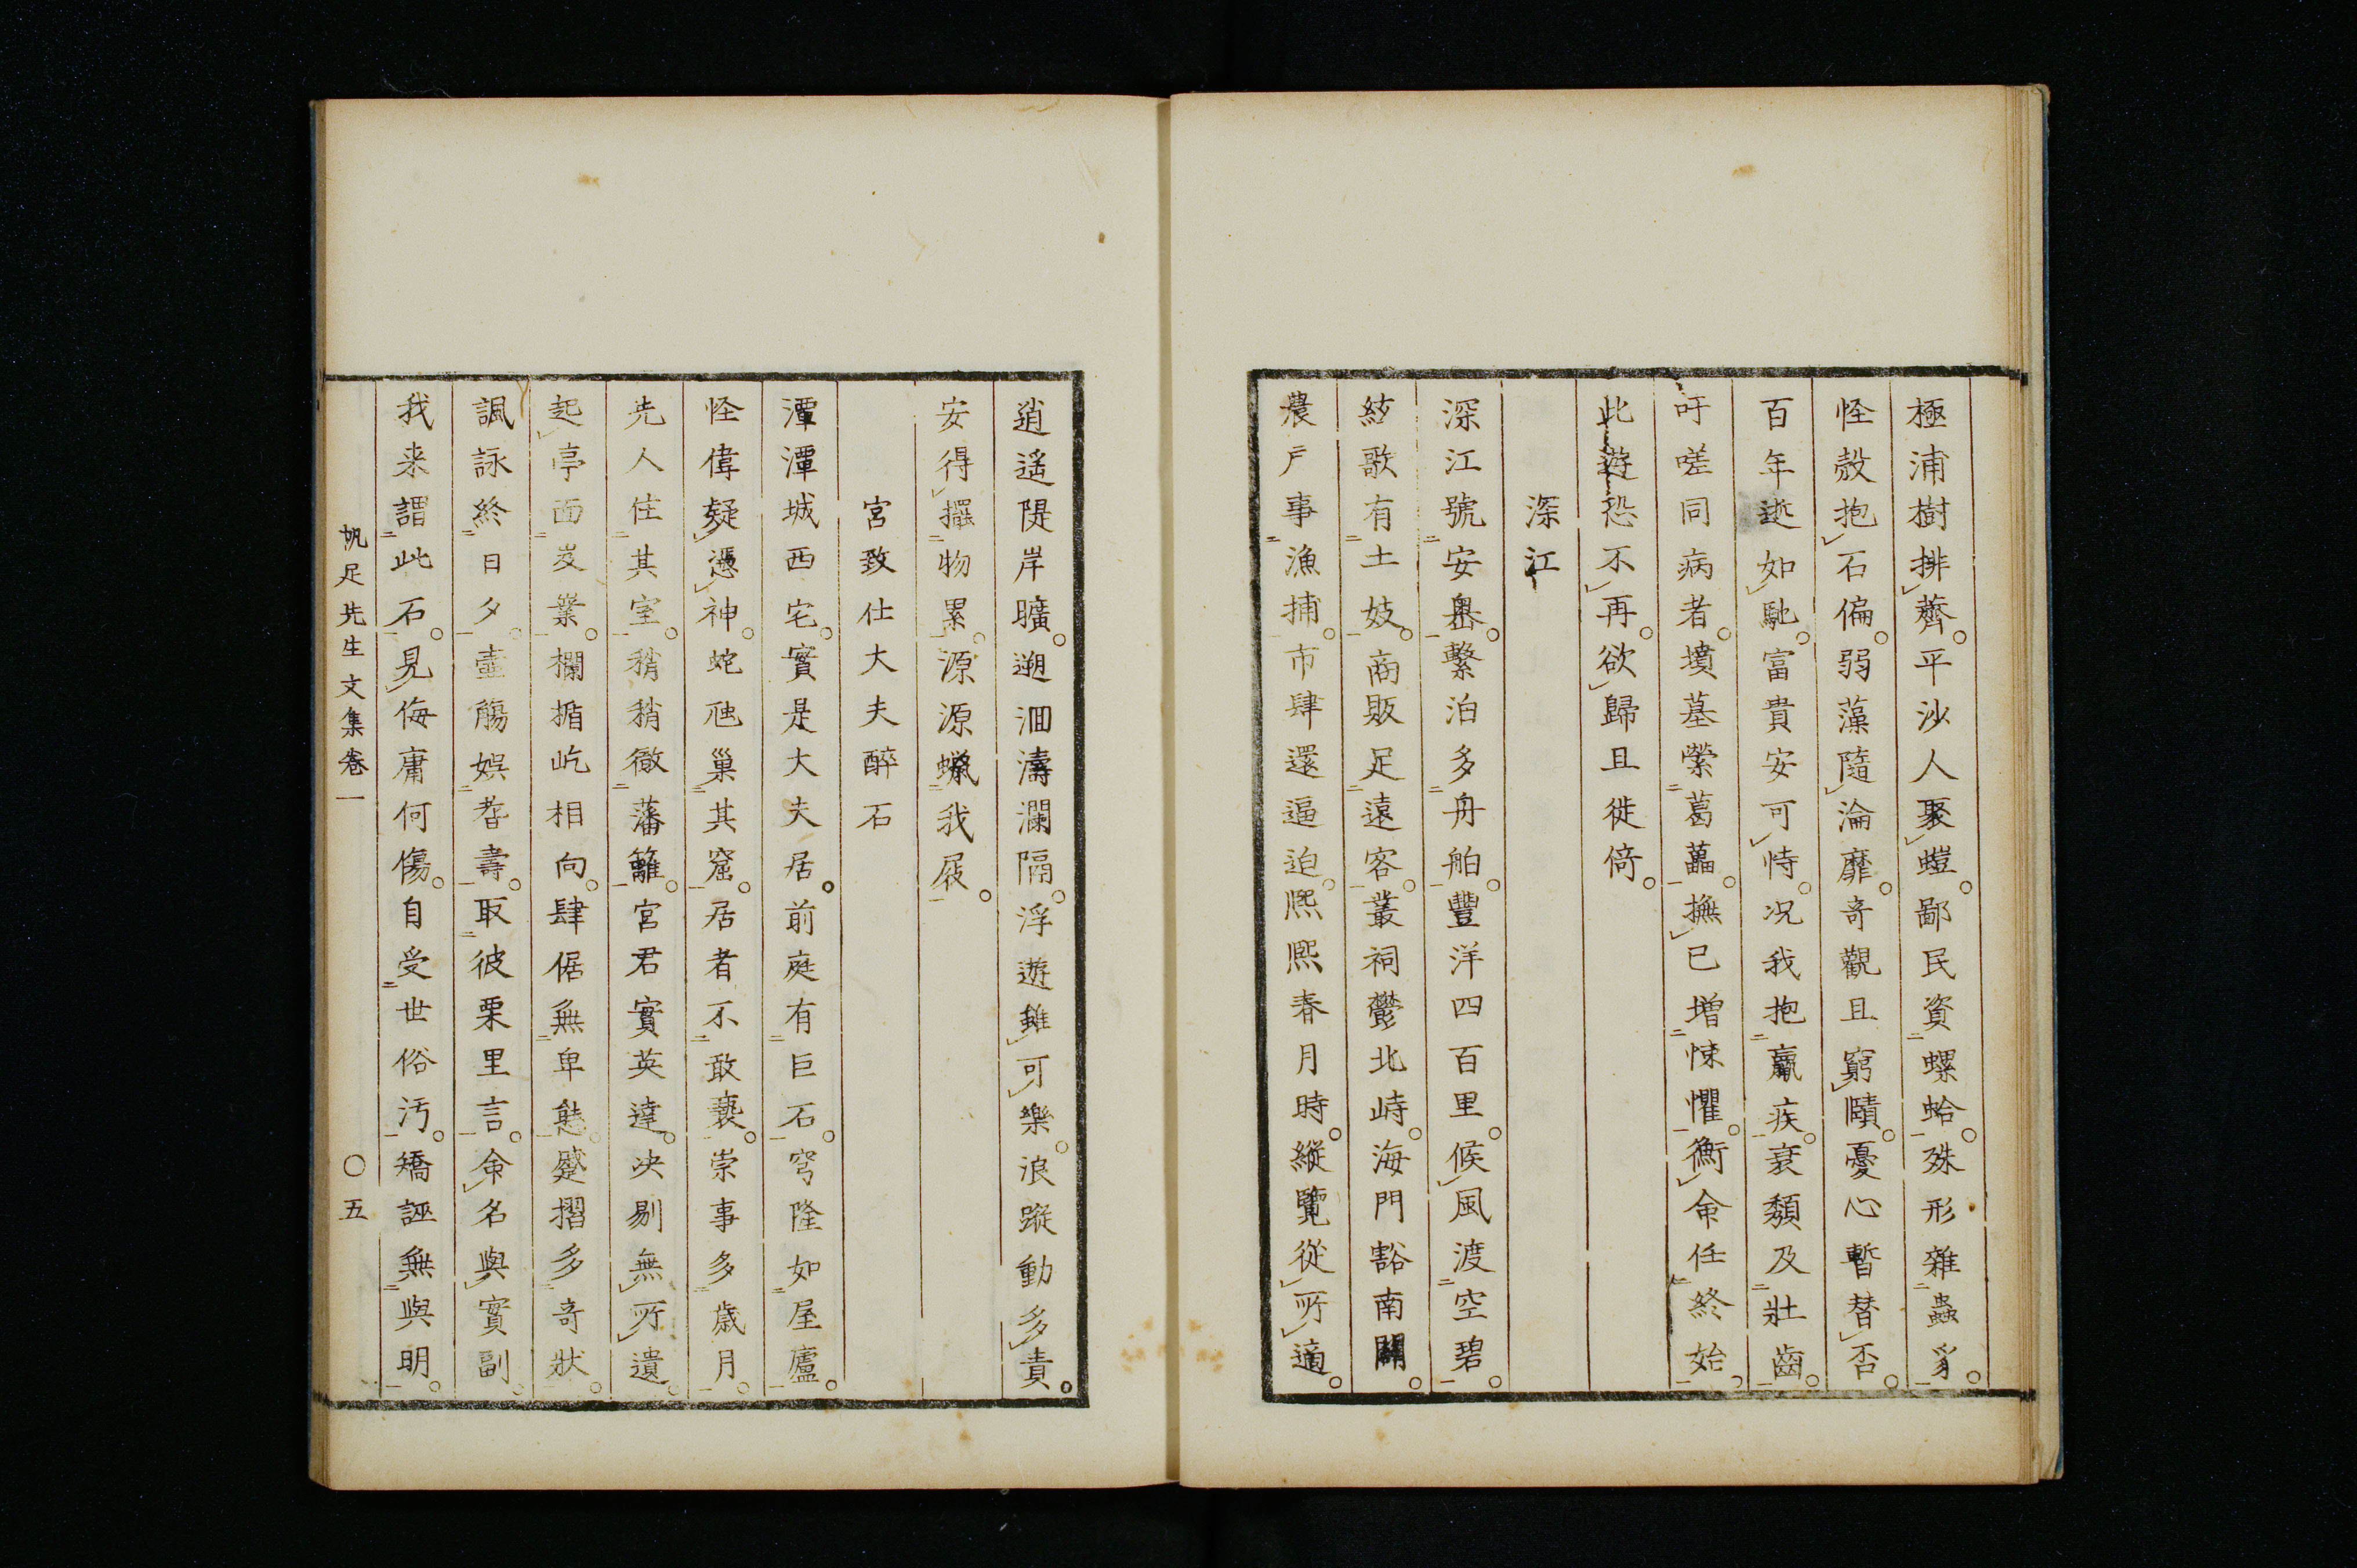 極浦樹排薺。平沙人聚螘。鄙民資螺蛤。殊形雜蟲豸。
怪殻抱石偏。弱藻隨淪靡。奇觀且窮賾。憂心暫替否
百年逝如馳。富貴安可恃。况我抱羸疾。衰頽及壯齒。
吁嗟同病者。墳墓縈葛藟。撫已增悚懼。衡命任終始。
此遊恐不再。欲歸且徙倚。
深江
深江號安嶴。繫泊多舟舶。豐洋四百里。候風渡空碧。
絃歌有土妓。商販足遠客。叢祠鬱北峙。海門豁南闢。
農戸事漁捕。市肆還逼迫。熈熈春月時。縱覽從所適。
逍遙隄岸曠。遡洄濤瀾隔。浮遊雖可樂。浪蹤動多責。
安得擺物累。源源蠟我屐。
宮致仕大夫醉石
潭潭城西宅。實是大夫居。前庭有巨石。穹隆如屋廬。
怪偉疑憑神。蛇虺巢其窟。居者不敢褻。崇事多歳月。
先人住其室。稍稍徹藩籬。宮君實英達。决剔無所遺。
起亭面岌嶪。欄楯屹相向。肆倨無卑態。蹙摺多奇狀。
諷詠終日夕。壷觴娯耆壽。取彼栗里言。命名與實副。
我来謂此石。見侮庸何傷。自受世俗汚。矯誣無與明。
帆足先生文集卷一
〇五